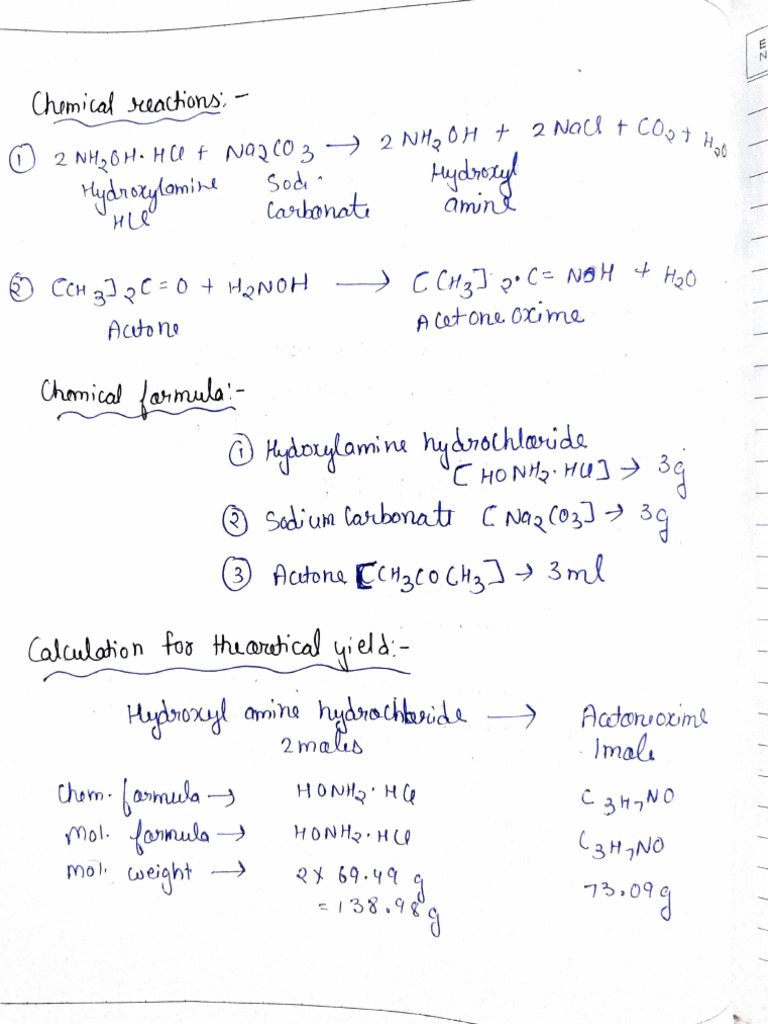 E
N
Chemical reactions:-
① 2 NH2OH·HCl + Na2CO3 → 2 NH2OH + 2 NaCl + CO2 + H2O
Hydroxylamine HCl
Sodi· Carbonate
Hydroxyl amine
② [CH3]2C=O + H2NOH → [CH3]2·C=NOH + H2O
Acetone
Acetone oxime
Chemical formula:-
① Hydoxylamine hydrochloride
[HONH2·HCl] → 3g
② Sodium Carbonate [Na2CO3] → 3g
③ Acetone [CH3COCH3] → 3ml
Calculation for theoretical yield:-
Hydroxyl amine hydrochloride → Acetoneoxime
2 moles 1 mole
Chem. formula → HONH2·HCl C3H7NO
Mol. formula → HONH2·HCl C3H7NO
mol. weight → 2 x 69.49 g 73.09g
= 138.98g